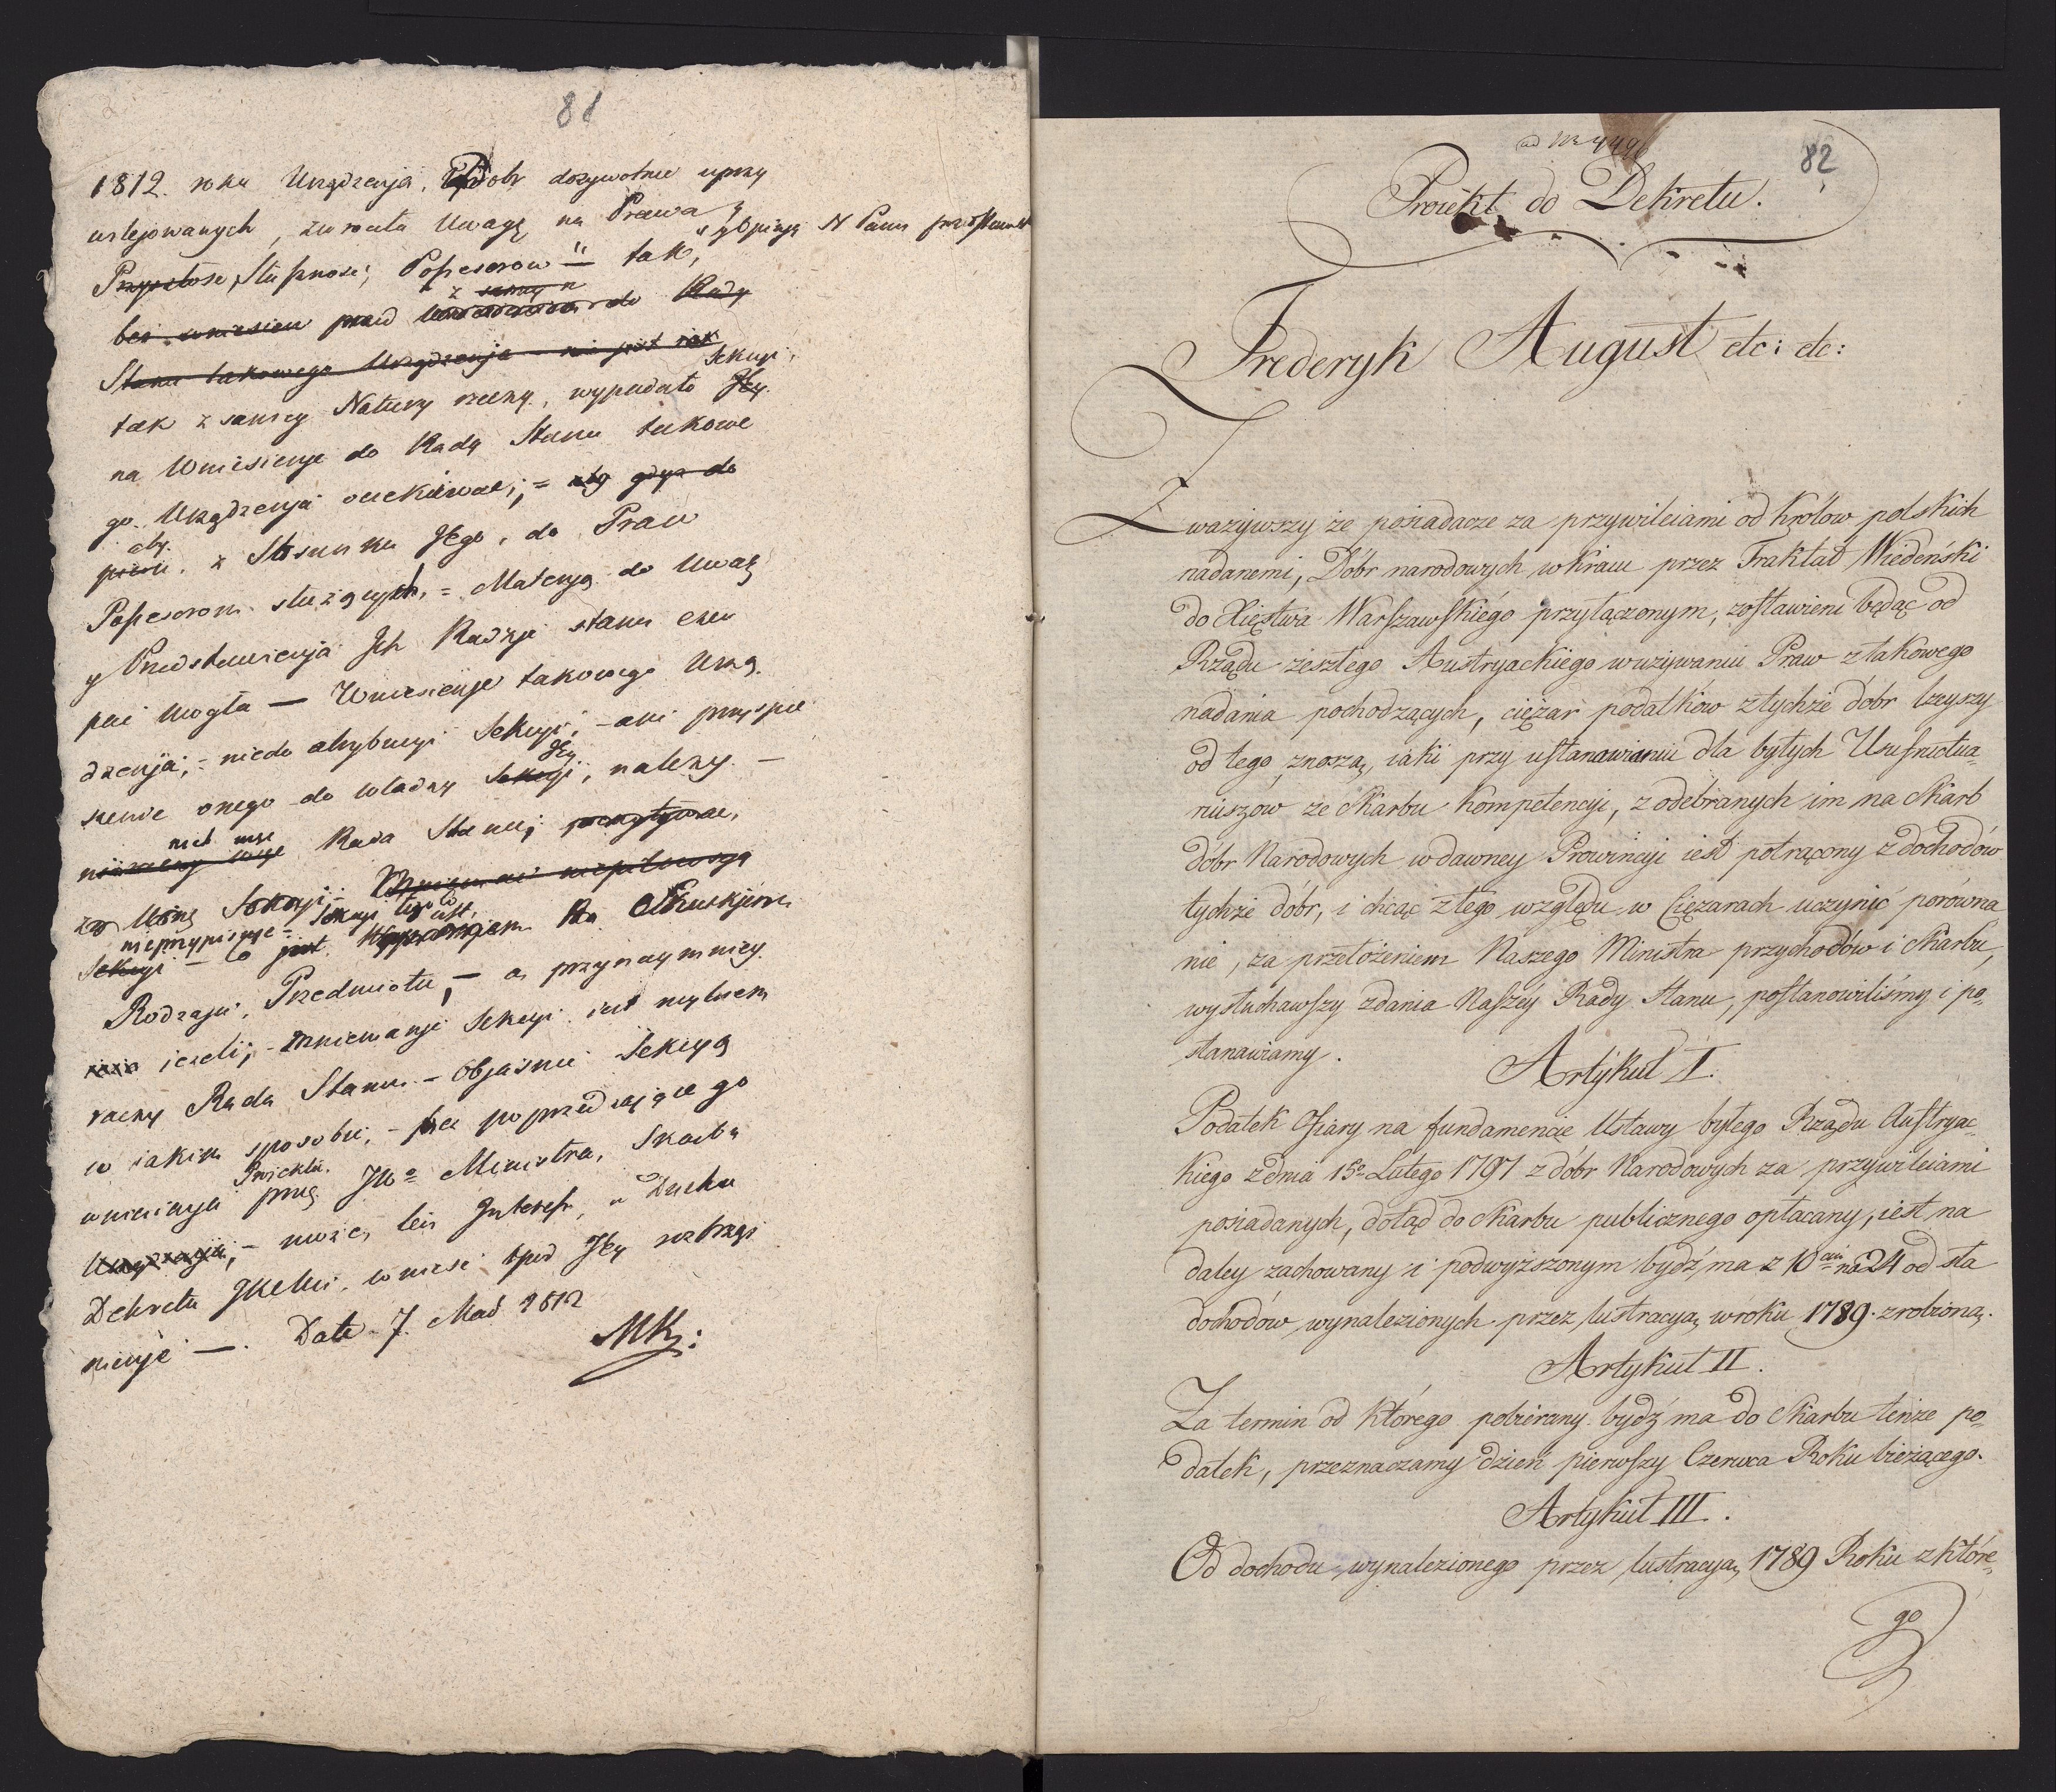 81
1812. roku Urządzenia, Dobr dozywotnie uprzy
wilejowanych, zwrocita Uwagę na Prawa y
Przyszłosc, Słuſznosc, Poſsesorow — tak, y Opinją N Panu przedstawił
bez wniesieu przed do Rady
z samey
Stanu takowego Urządzenja nie jest rzek
tak z samey Natury rzeczy, wypadało Jey
Sekcyi,
na Wniesienje do Rady Stanu takowe
go Urządzenja oczekiwac; = aby gdyz do
aby
z Stosunku Jego, do Praw
Poſsesorom służących, = Materyą do Uwag
y Przedstawienja Jch Radzje stanu czer
pac mogła — Wniesienje takowego Urzą
dzenja, = nie do atrybucyi Sekcyi, - ani przyspie
szenie onego do władzy Sekcyi, nalezy —
Jey
niech wiec Rada Stanu,
za Winę Sekcyi
nieprzypisuje = Sekcyi tego Co
Sekcyi — Co jest
Rodzaju, Przedmiotu, — a przynaymniey
iezeli, - mniemanje Sekcyi iest mylnem
raczy Rada Stanu - Objasnic Sekcyą
w iakim sposobie, - bez poprzedzające go
wniesienja przez JWo Ministra, Skarbu
Projektu
Urządzenja, - moze, ten Interess, w Duchu
Dekretu wniesc pod Jey roztrząs
nienje —. Date 7. Mad 1812
MK:
ad Nr 449
82
Proiekt do Dekretu.
Frederyk August etc: etc:
Zważywszy że posiadacze za przywileiami od Królow polskich
nadanemi, Dóbr narodowych w kraiu przez Traktat Wiedeński
do Xięstwa Warſzawſkiego przyłączonym, zoſtawieni będąc od
Rządu zeszłego Austryackiego w używaniu Praw z takowego
nadania pochodzących, ciężar podatków z tychże dóbr lzeyszy
od tego znoszą, iaki przy uſtanawianiu dla byłych Usufructua-
riuszów ze Skarbu Kompetencyi, z odebranych im na Skarb
dóbr Narodowych w dawney Prowincyi iest potrącony z dochodów
tychże dóbr, i chcąc z tego względu w Ciężarach uczynić porówna
nie, za przełożeniem Naszego Ministra przychodów i Skarbu,
wysłuchawſzy zdania Naſzéy Rady Stanu, poſtanowiliśmy i po-
stanawiamy.
Artykuł I.
Podatek Ofiary na fundamencie Ustawy byłego Rządu Auſtryac-
kiego z dnia 15o Lutego 1797 z dóbr Narodowych za przywileiami
posiadanych, dotąd do Skarbu publicznego opłacany, iest na
daley zachowany i podwyższonym bydź ma z 10ciu na 24 od sta
dochodów wynalezionych przez lustracyą w roku 1789. zrobioną.
Artykuł II.
Za termin od którego pobierany bydź ma do Skarbu tenże po-
datek, przeznaczamy dzień pierwſzy Czerwca Roku bieżącego.
Artykuł III.
Od dochodu wynalezionego przez lustracyą 1789 Roku z które-
go